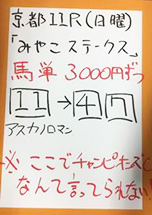 京都11R(日曜)
「みやこステークス」
馬単 3000円ずつ
11→4 7
アスカノロマン
※ここでチャンピオンズC
なんて言ってられない